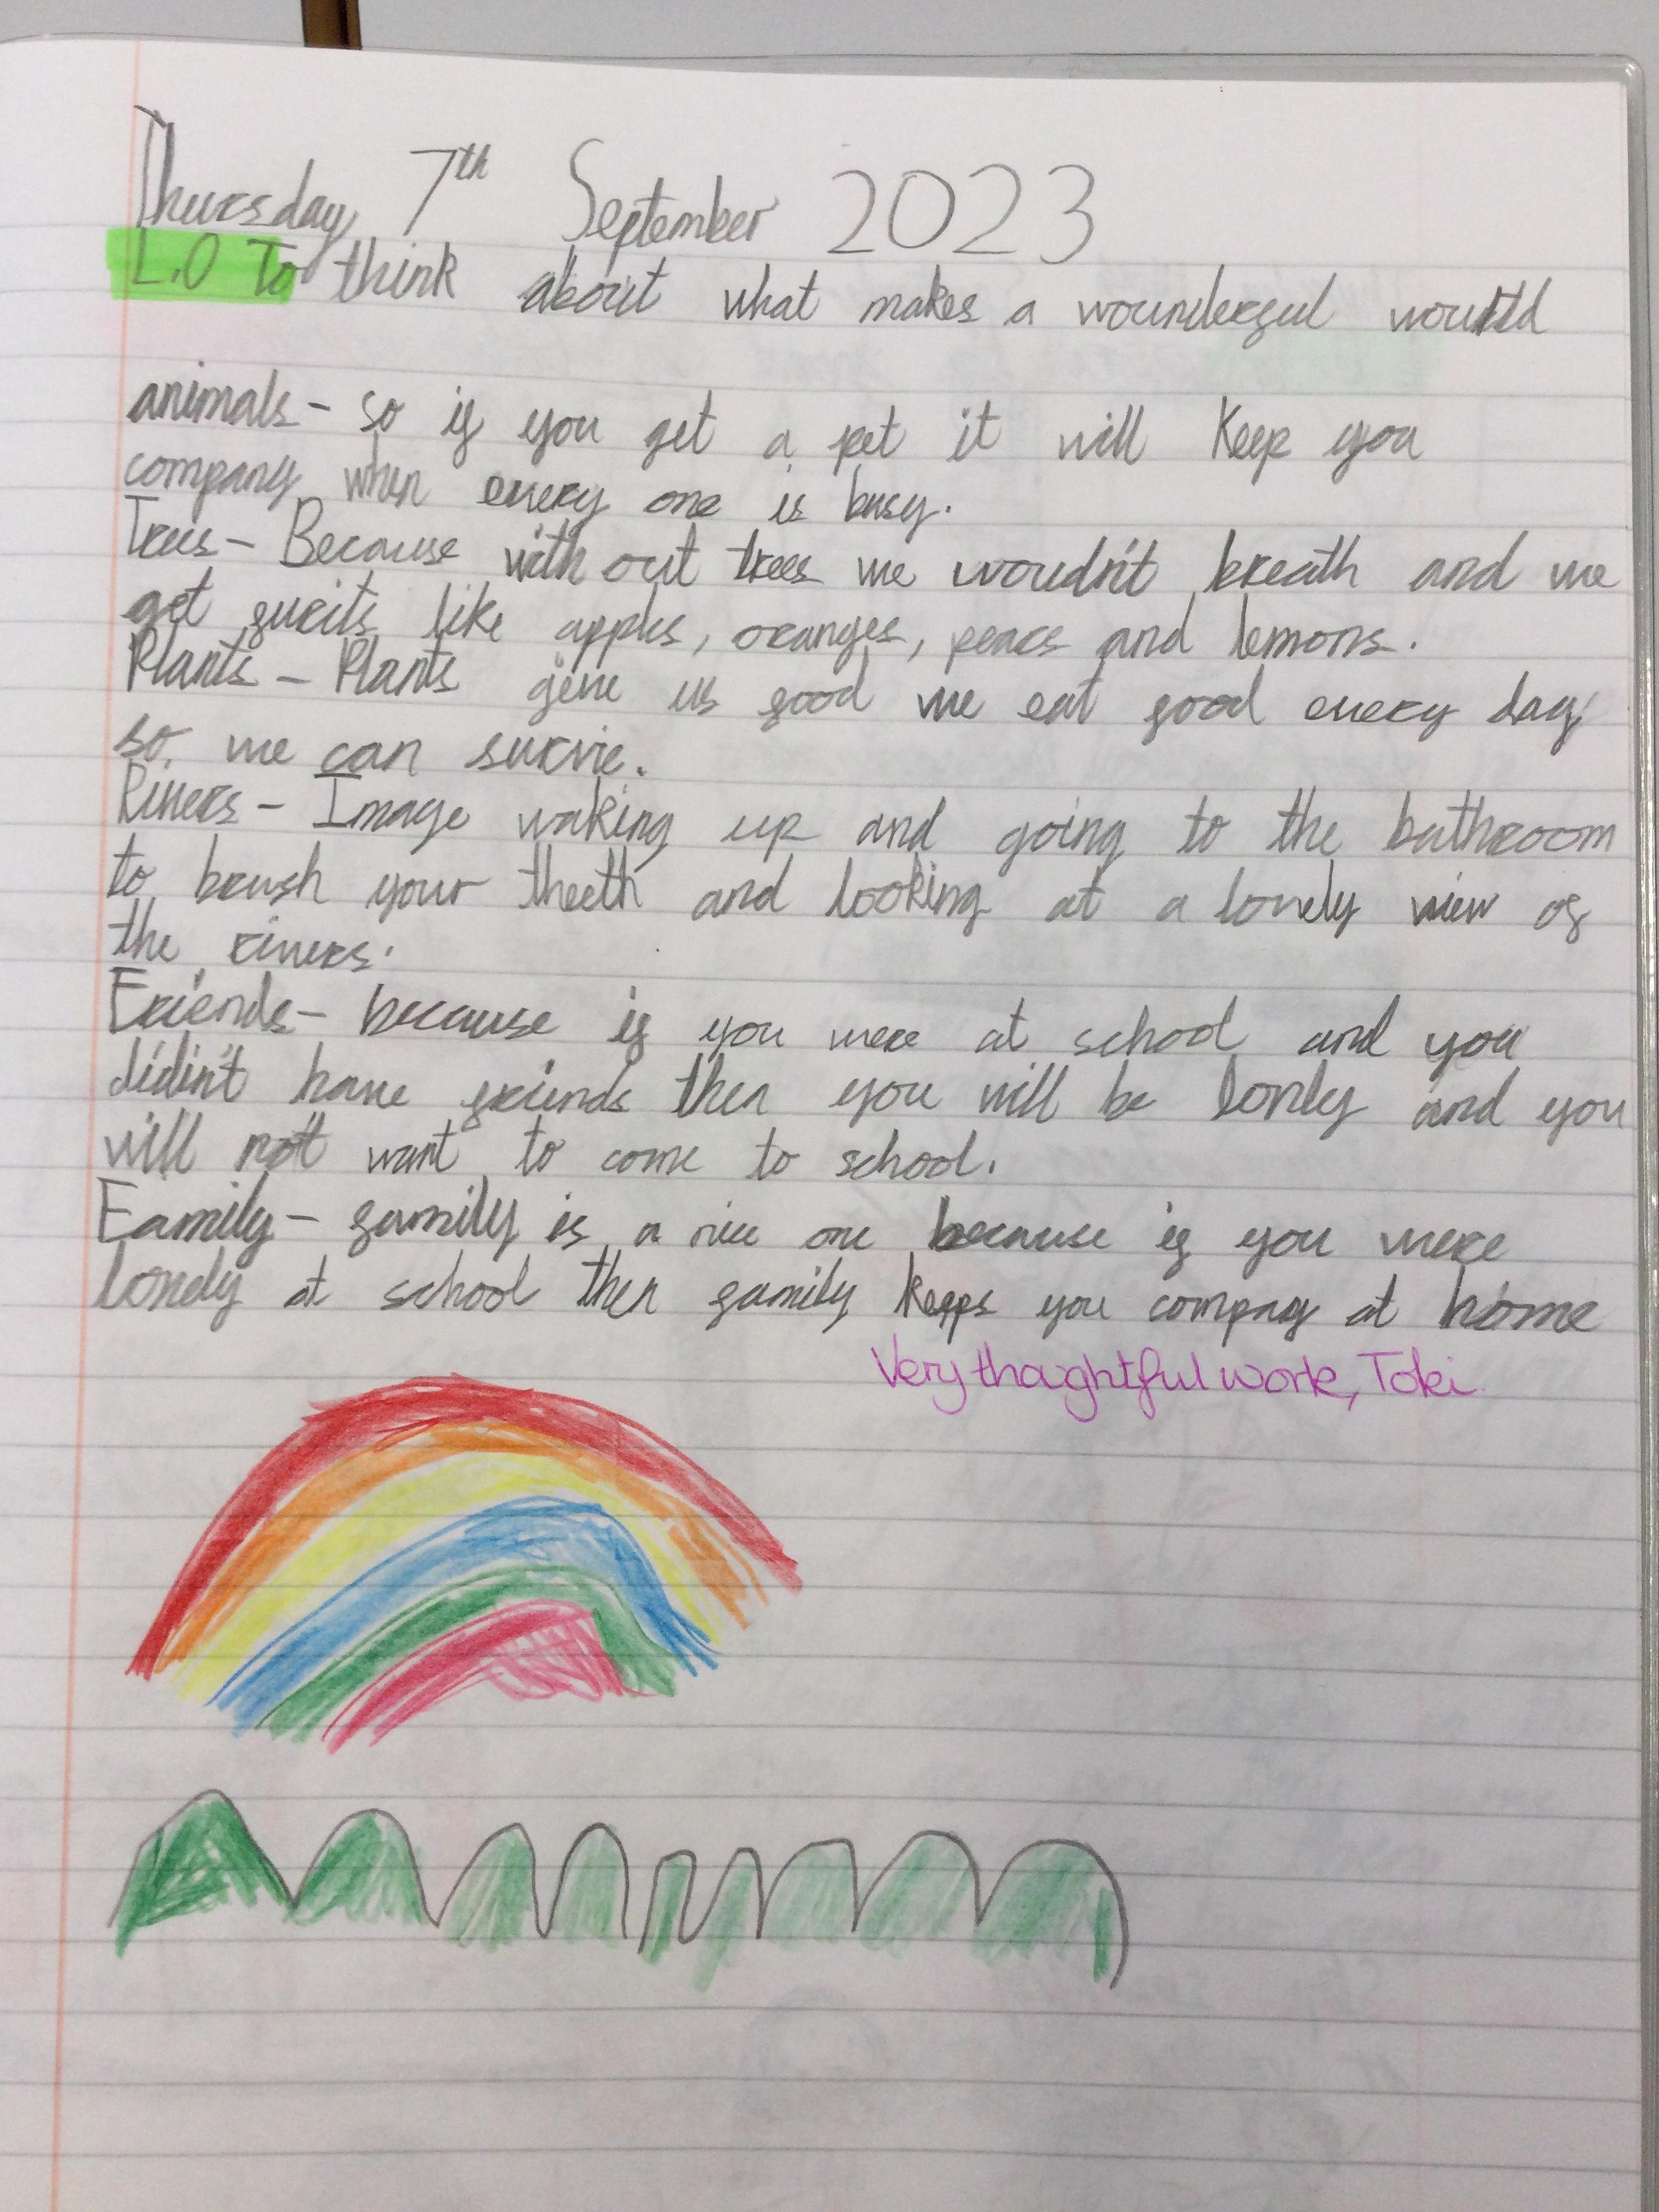 Thursday 7th September 2023
L.O To think about what makes a wounderful wourld
animals - so if you get a pet it will keep you
company when every one is busy.
Trees - Because with out trees we woudn't breath and we
get fruits like apples, oranges, pears and lemons.
Plants - Plants give us food we eat food every day
so we can survie.
Rivers - Image waking up and going to the bathroom
to brush your theeth and looking at a lovely view of
the rivers.
Friends - because if you were at school and you
didin't have friends then you will be lonly and you
will not want to come to school.
Family - family is a nice one because if you were
lonely at school then family keeps you compnay at home
Very thoughtful work, Toki